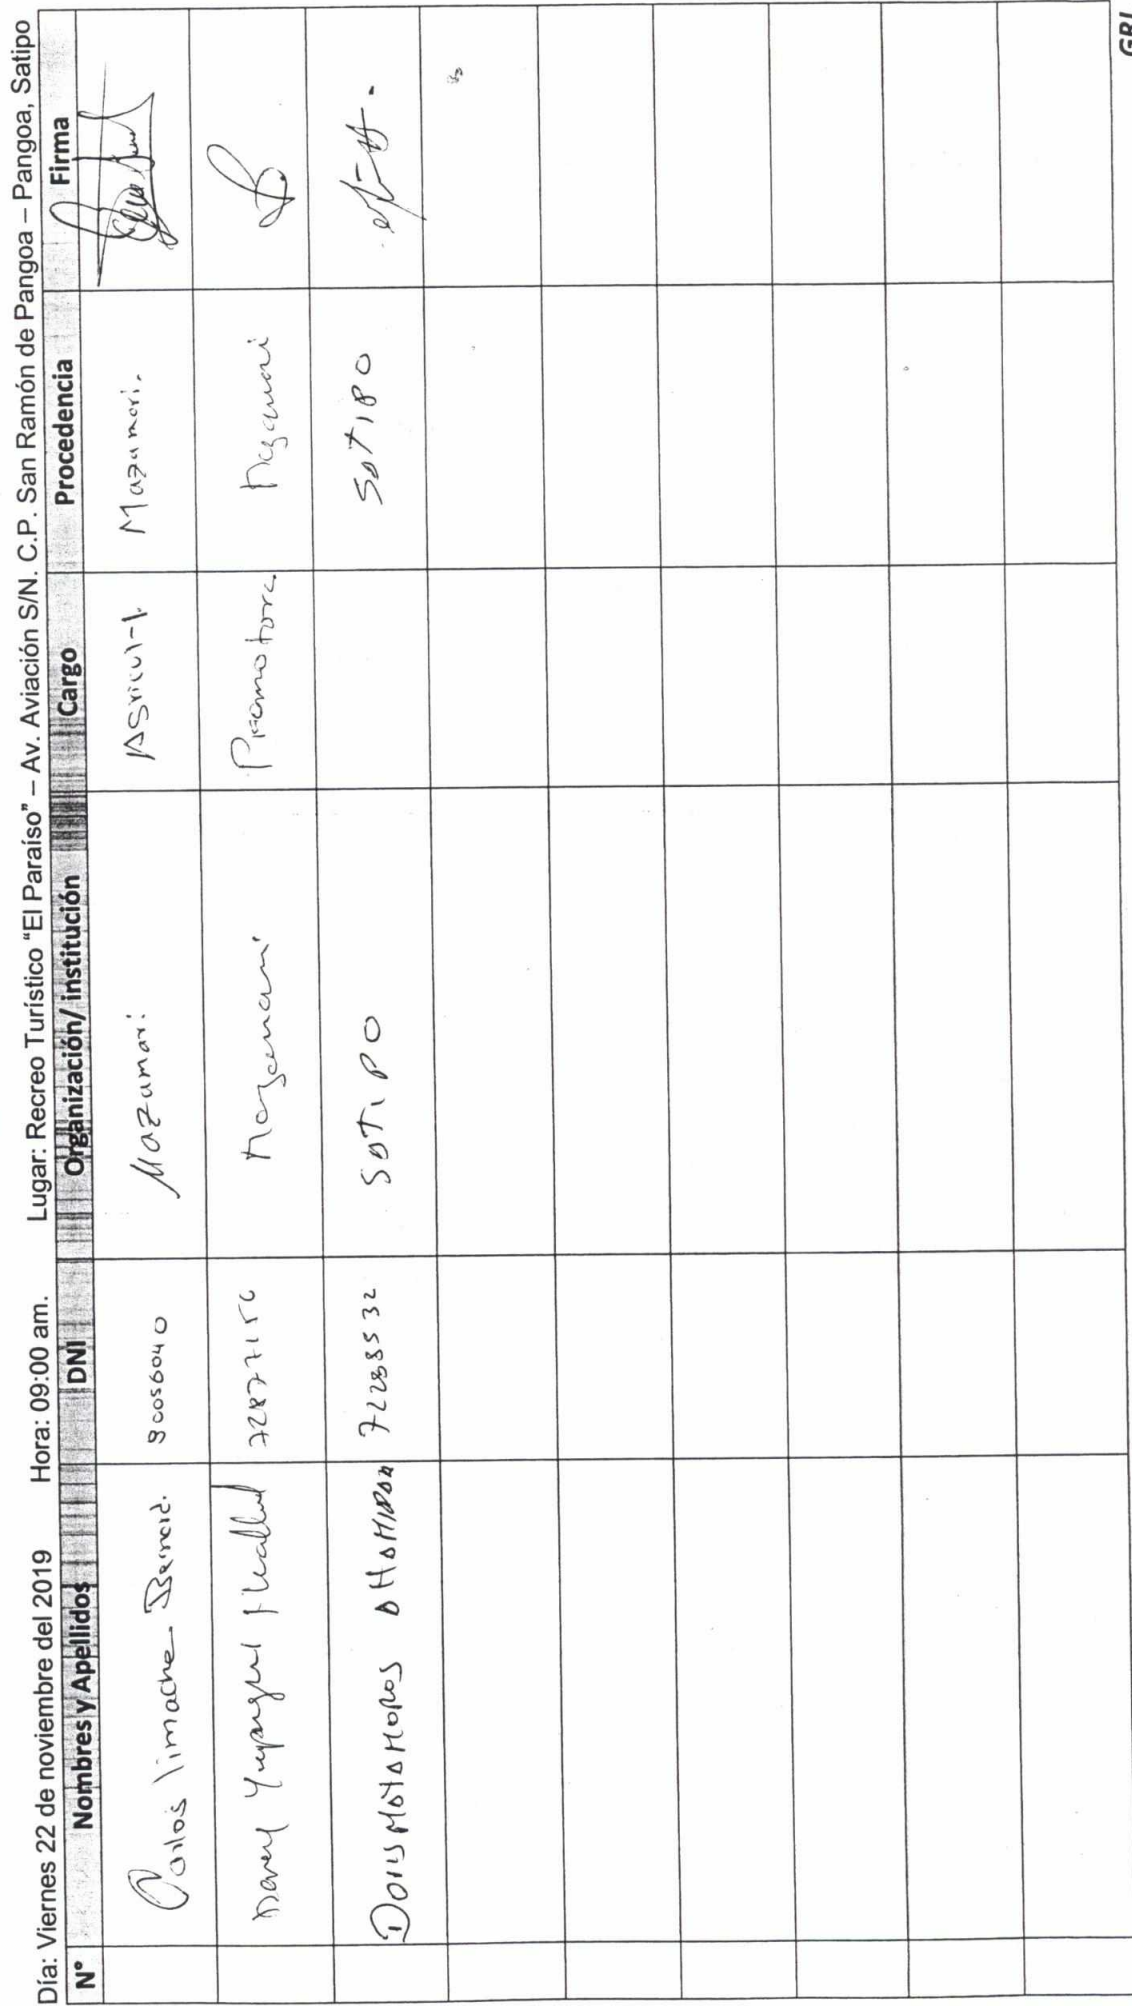 Día: Viernes 22 de noviembre del 2019 Hora: 09:00 am. Lugar: Recreo Turístico "El Paraíso" – Av. Aviación S/N. C.P. San Ramón de Pangoa – Pangoa, Satipo
N° Nombres y Apellidos DNI Organización/ institución Cargo Procedencia Firma
Carlos limache 80056040 Mazamari Mazamari.
Yupanqui Promotora
Doris MATAMOROS 72283532 SATIPO SATIPO
GRJ